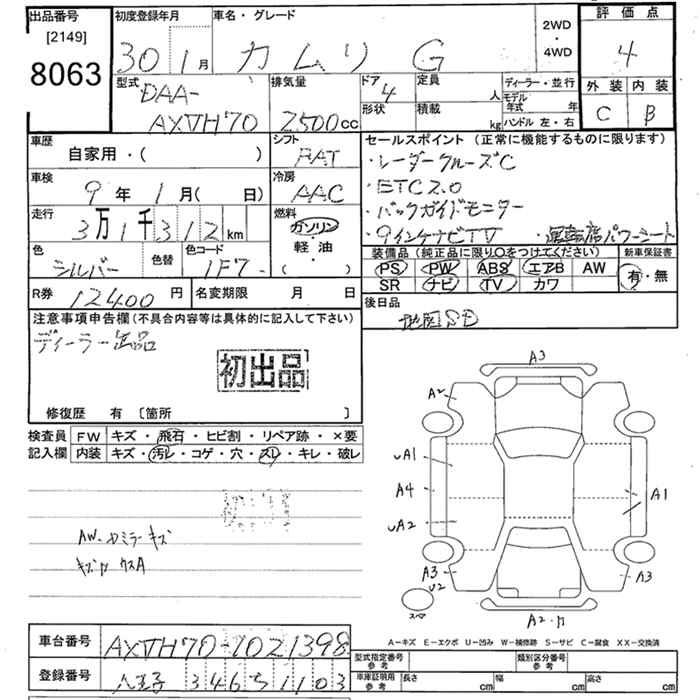 出品番号
[2149]
8063
初度登録年月
30 1月
車名・グレード
カムリ G
2WD
・
4WD
評価点
4
外装 内装
C B
型式
DAA-
AXVH70
排気量
2500cc
ドア 4
形状
定員 人
積載 kg
ディーラー・並行
モデル年式 年
ハンドル 左・右
車歴
自家用・( )
シフト
FAT
車検
9年 1月( 日)
冷房
AAC
走行
3万1千312km
燃料
ガソリン
軽・油
・( )
色
シルバー
色替
色コード
1F7-
R券 12400円
名変期限 月 日
セールスポイント(正常に機能するものに限ります)
・レーダークルーズC
・ETC2.0
・バックガイドモニター
・9インチナビTV ・運転席パワーシート
装備品(純正品に限り○をつけてください)
PS PW ABS エアB AW
SR ナビ TV カワ
新車保証書
有・無
後日品
地図SD
注意事項申告欄(不具合内容等は具体的に記入して下さい)
ディーラー出品
初出品
修復歴 有〔箇所 〕
検査員記入欄
FW キズ・飛石・ヒビ割・リペア跡・×要
内装 キズ・汚レ・コゲ・穴・スレ・キレ・破レ
AW.ドミラーキズ
A3
A2
uA1
A4
uA2
A1
A3
U2
A3
スペア
A2.
A-キズ E-エクボ U-凹み W-補修跡 S-サビ C-腐食 XX-交換済
車台番号 AXVH70-1021398
登録番号 八王子 346 す 1103
型式指定番号 参考
類別区分番号 参考
車庫証明用 参考 長さ cm 幅 cm 高さ cm